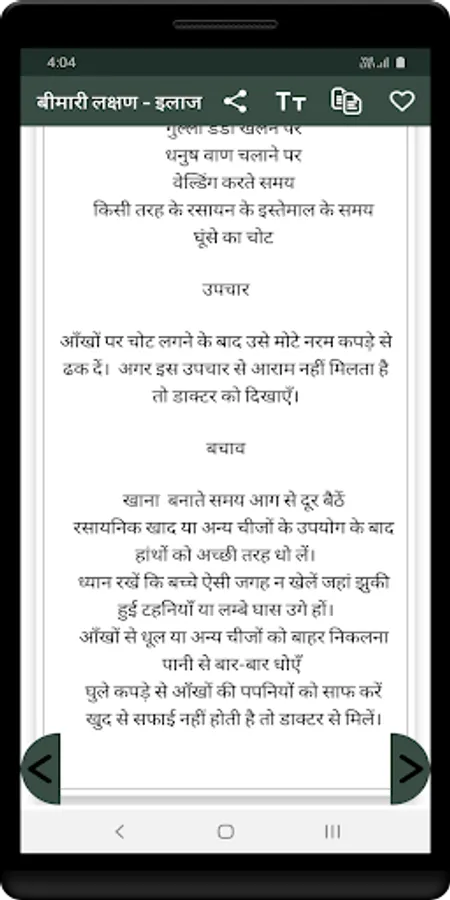 4:04
बीमारी लक्षण - इलाज
गुल्ली डंडा खेलने पर
धनुष वाण चलाने पर
वेल्डिंग करते समय
किसी तरह के रसायन के इस्तेमाल के समय
घूंसे का चोट
उपचार
आँखों पर चोट लगने के बाद उसे मोटे नरम कपड़े से
ढक दें। अगर इस उपचार से आराम नहीं मिलता है
तो डाक्टर को दिखाएँ।
बचाव
खाना बनाते समय आग से दूर बैठें
रसायनिक खाद या अन्य चीजों के उपयोग के बाद
हांथों को अच्छी तरह धो लें।
ध्यान रखें कि बच्चे ऐसी जगह न खेलें जहां झुकी
हुई टहनियाँ या लम्बे घास उगे हों।
आँखों से धूल या अन्य चीजों को बाहर निकलना
पानी से बार-बार धोएँ
घुले कपड़े से आँखों की पपनियों को साफ करें
खुद से सफाई नहीं होती है तो डाक्टर से मिलें।